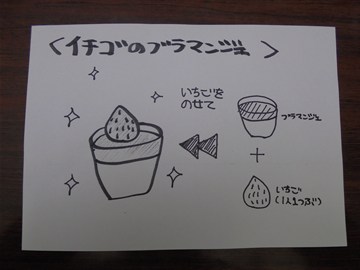 <イチゴのブラマンジェ>
いちごを
のせて
ブラマンジェ
+
いちご
(1人1つぶ)